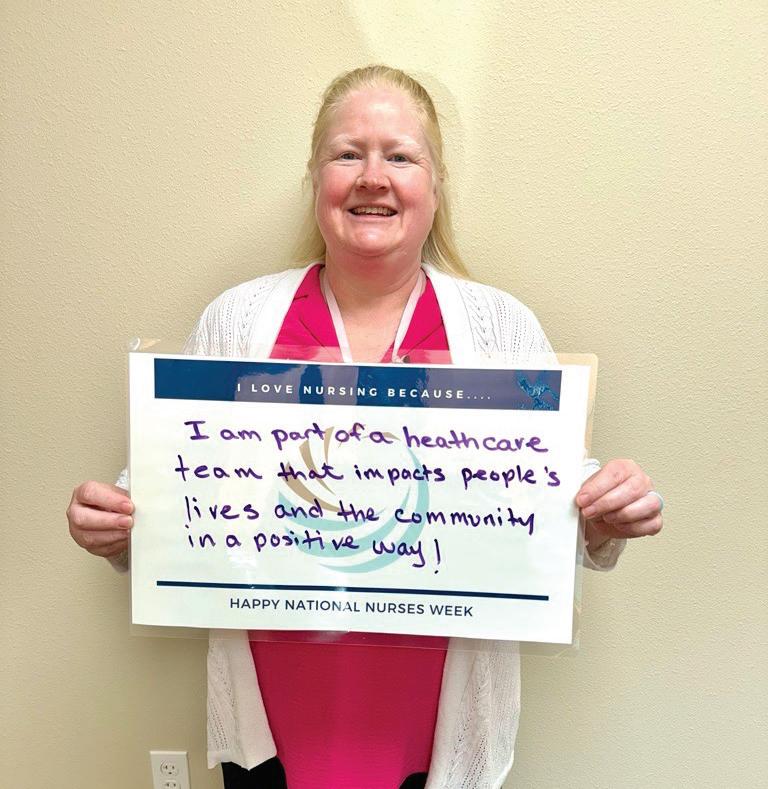 I LOVE NURSING BECAUSE....
I am part of a heathcare
team that impacts people's
lives and the community
in a positive way!
HAPPY NATIONAL NURSES WEEK